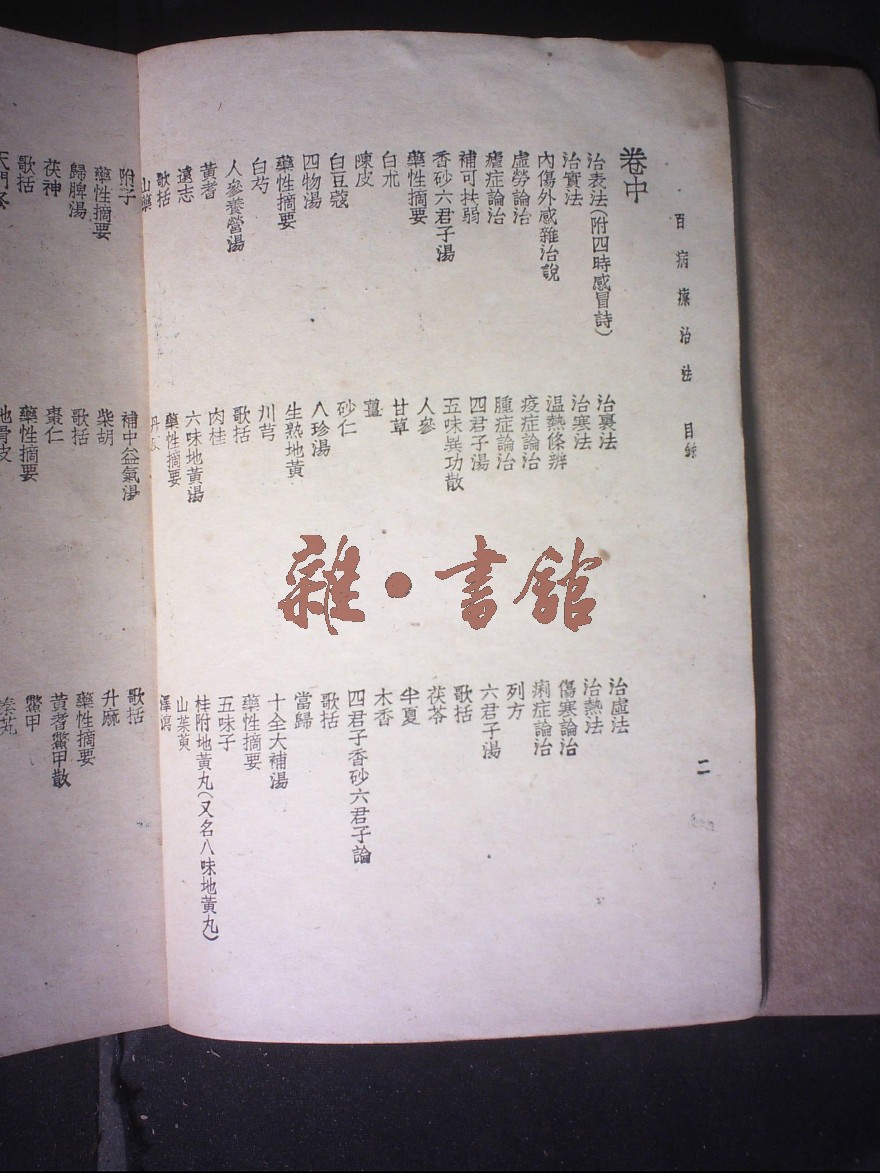 百病療治法 目錄 二
卷中
治表法(附四時感冒詩) 治裏法 治虛法
治實法 治寒法 治熱法
內傷外感雜治說 温熱條辨 傷寒論治
虛勞論治 疫症論治 痢症論治
瘧症論治 腫症論治 列方
補可扶弱 四君子湯 六君子湯
香砂六君子湯 五味異功散 歌括
藥性摘要 人參 茯苓
白朮 甘草 半夏
陳皮 薑 木香
白豆蔻 砂仁 四君子香砂六君子論
四物湯 八珍湯 歌括
藥性摘要 生熟地黃 當歸
白芍 川芎 十全大補湯
人參養營湯 歌括 藥性摘要
黃耆 肉桂 五味子
遠志 六味地黃湯 桂附地黃丸(又名八味地黃丸)
歌括 藥性摘要 山茱萸
山藥 澤瀉
附子 補中益氣湯 歌括
藥性摘要 柴胡 升麻
歸脾湯 歌括 藥性摘要
茯神 棗仁 黃耆鱉甲散
歌括 藥性摘要 鱉甲
地骨皮 秦艽
雜·書館